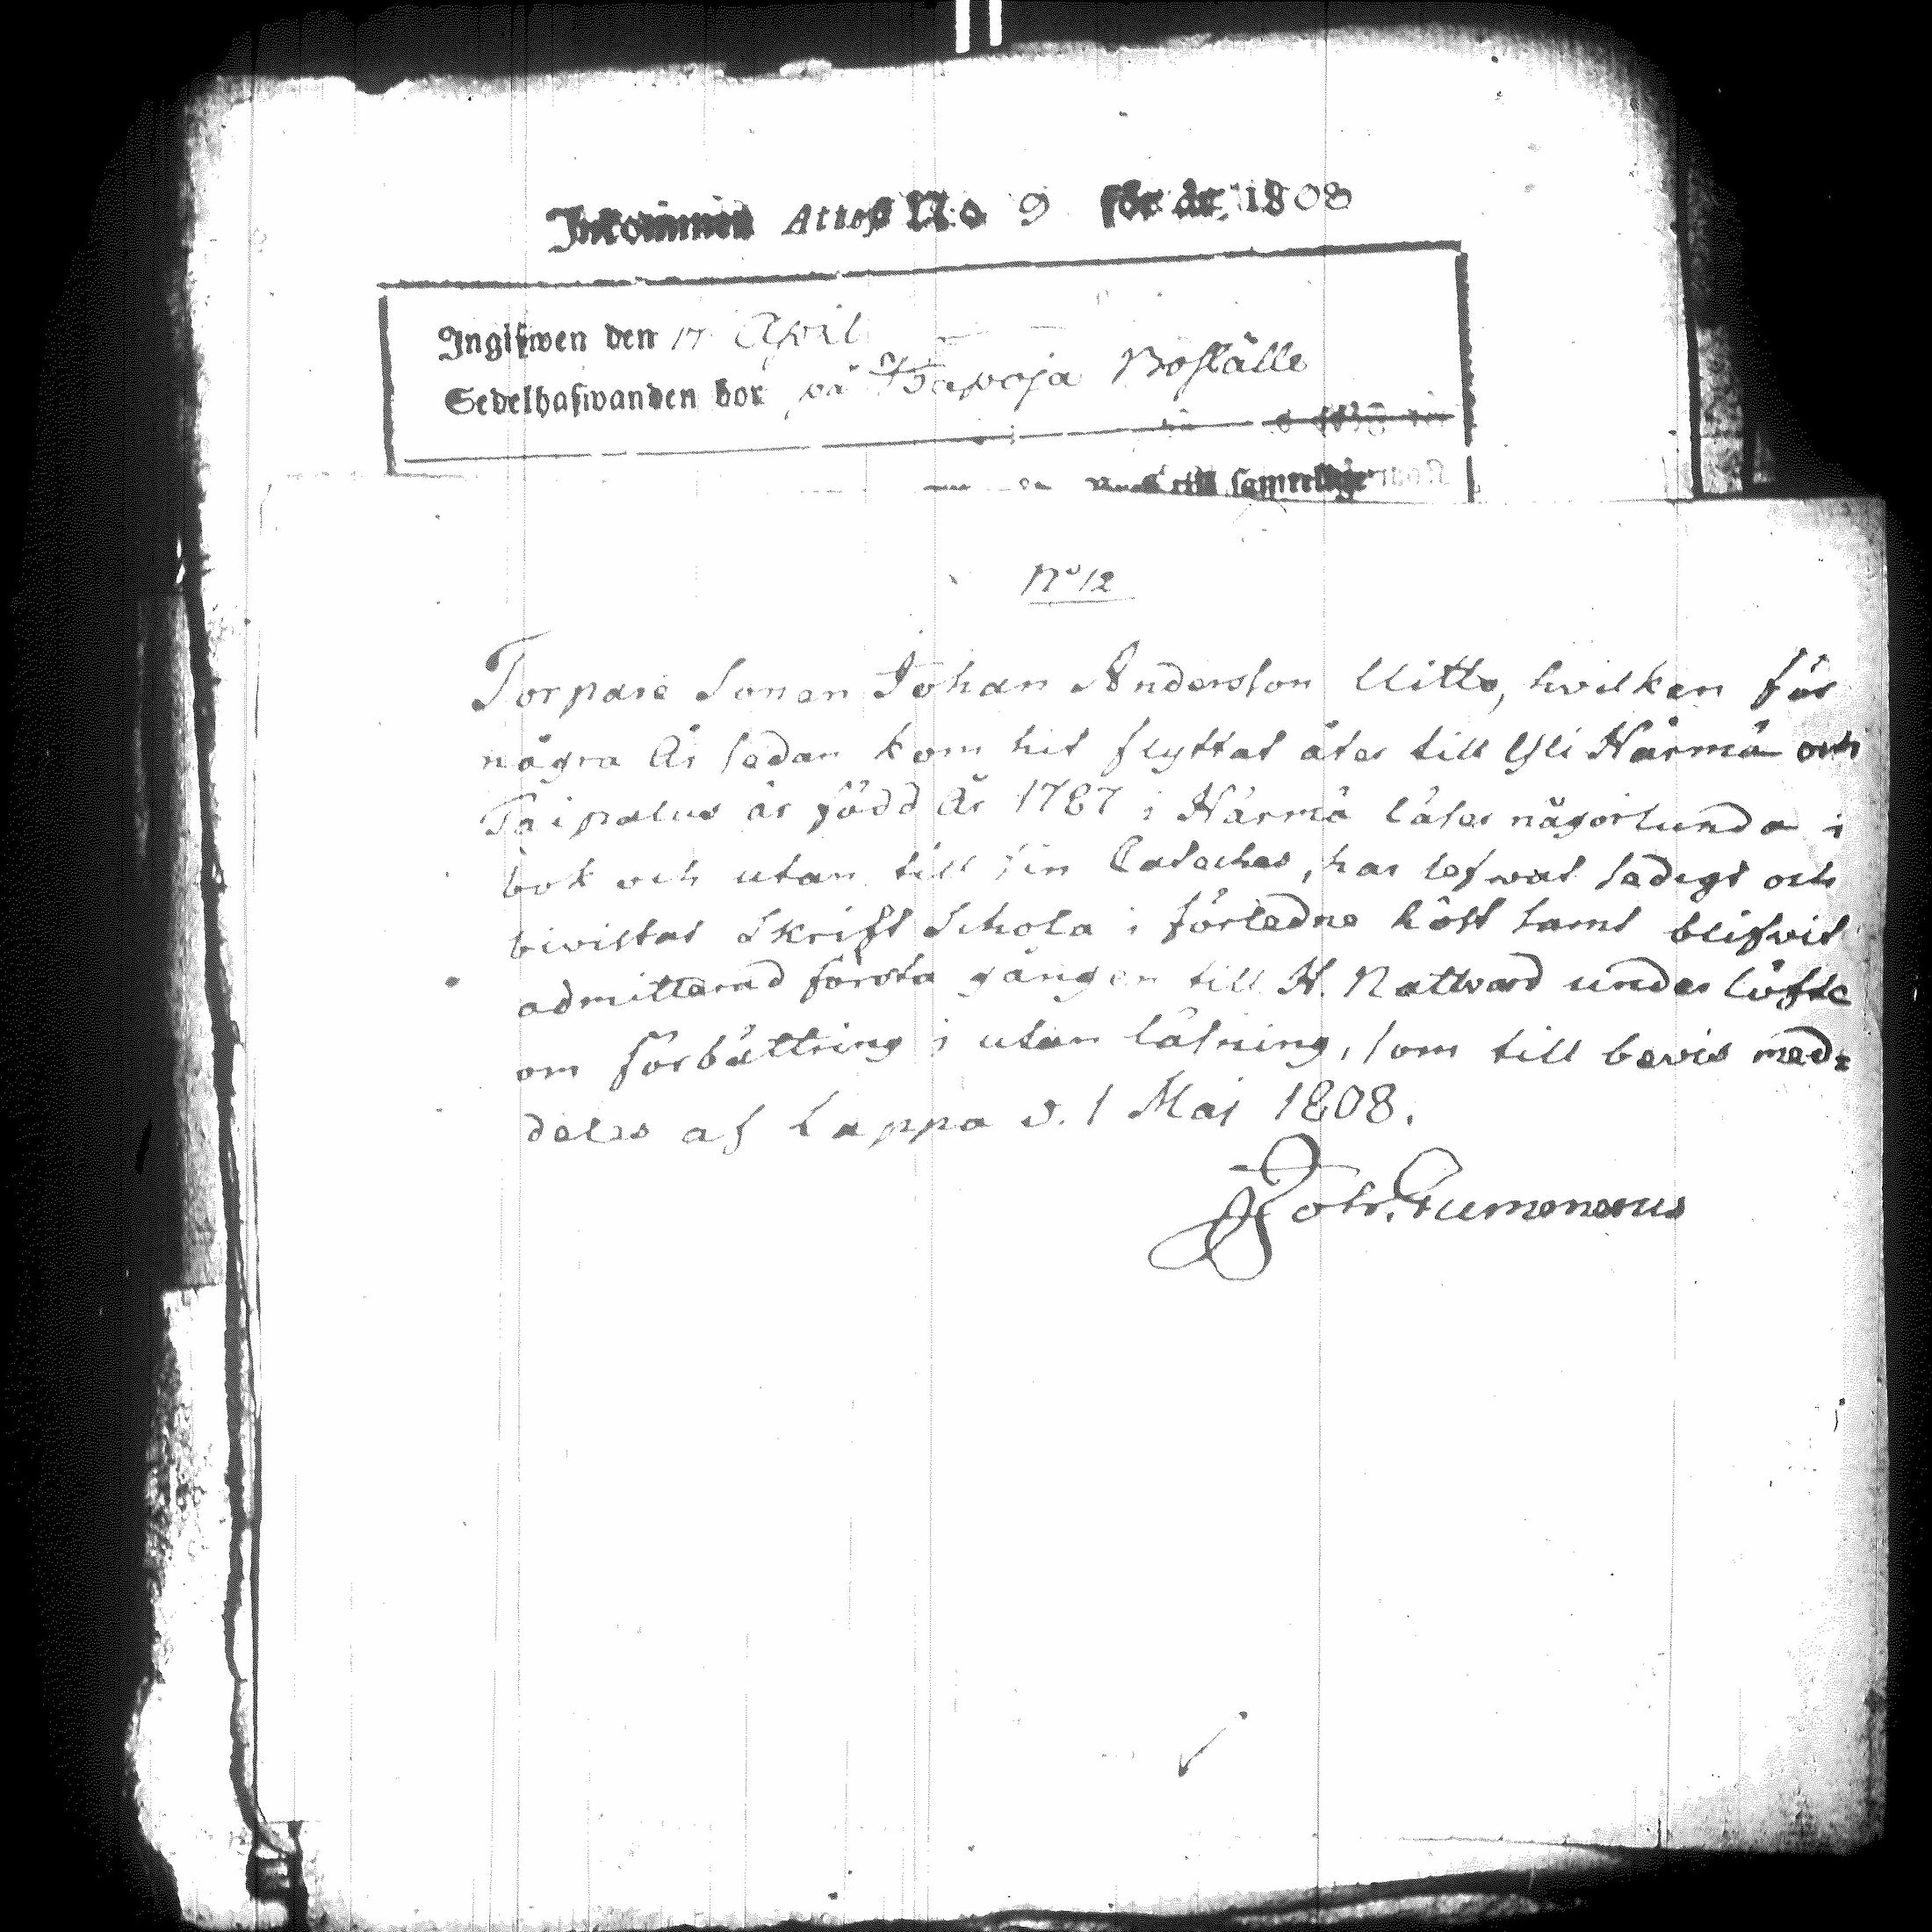 Inkommen Attest No 9 för år 1808
Ingifwen den 17 April
Sedelhafwanden bor på Tapoja Boställe
till samtelige
No 12
Torpare Sonen Johan Andersson Uitto, hvilken för
några År sedan kom hit flyttat åter till Yli Härmä och
Taipalus är född År 1787 i Härmä läser någorlunda i
bok och utan till sin Cateches, har lefwat sedigt och
bivistat Skrift Schola i förledne höst samt blifwit
admitterad första gången till H. Nattvard under löfte
om förbättring i utan läsning, som till bevis med=
deles af Lappo d. 1 Maj 1808.
Joh. Gummerus